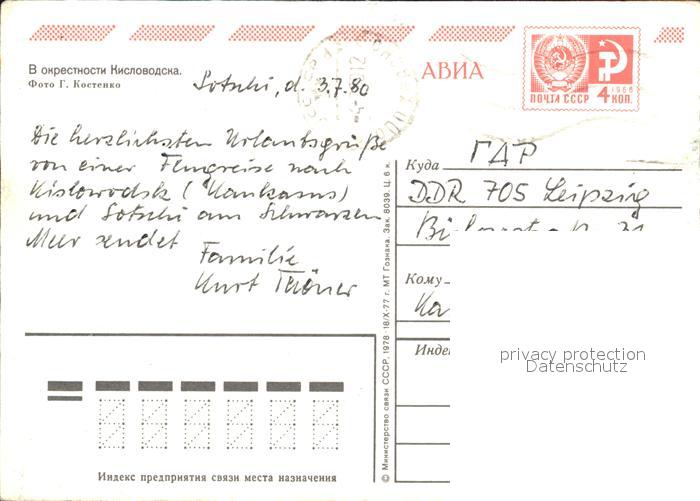 В окрестности Кисловодска.
Фото Г. Костенко
АВИА
1966
ПОЧТА СССР 4 КОП.
Sotschi, d. 3.7.80
Die herzlichsten Urlaubsgrüße
von einer Flugreise nach
Kislowodsk (Kaukasus)
und Sotschi am Schwarzen
Meer sendet
Familie
Kurt Thöner
Куда ГДР
DDR 705 Leipzig
Кому
Ka
Индек
privacy protection
Datenschutz
© Министерство связи СССР, 1978 · 18/X-77 г. МТ Гознака. Зак. 8039. Ц. 6 к.
Индекс предприятия связи места назначения